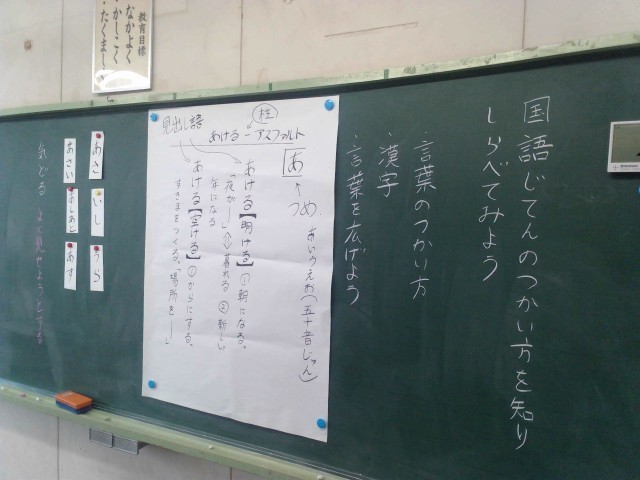 国語じてんのつかい方を知り
しらべてみよう
・言葉のつかい方
・漢字
・言葉を広げよう
柱
あける－アスファルト
見出し語
あ
つめ
あいうえお(五十音じゅん)
あける【明ける】①朝になる。
「夜が―」⇔暮れる ②新しい
年になる
あける【空ける】①からにする。
すきまをつくる。「場所を―」
あき
いし
うら
あさい
あす
気どる よく見せようとする
教育目標
なかよく
かしこく
たくまし